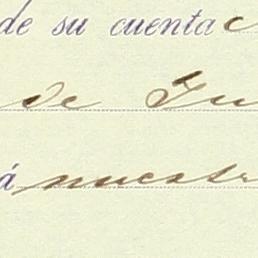 de su cuenta c
de Ju
á nuestr